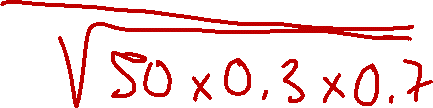 √50×0.3×0.7